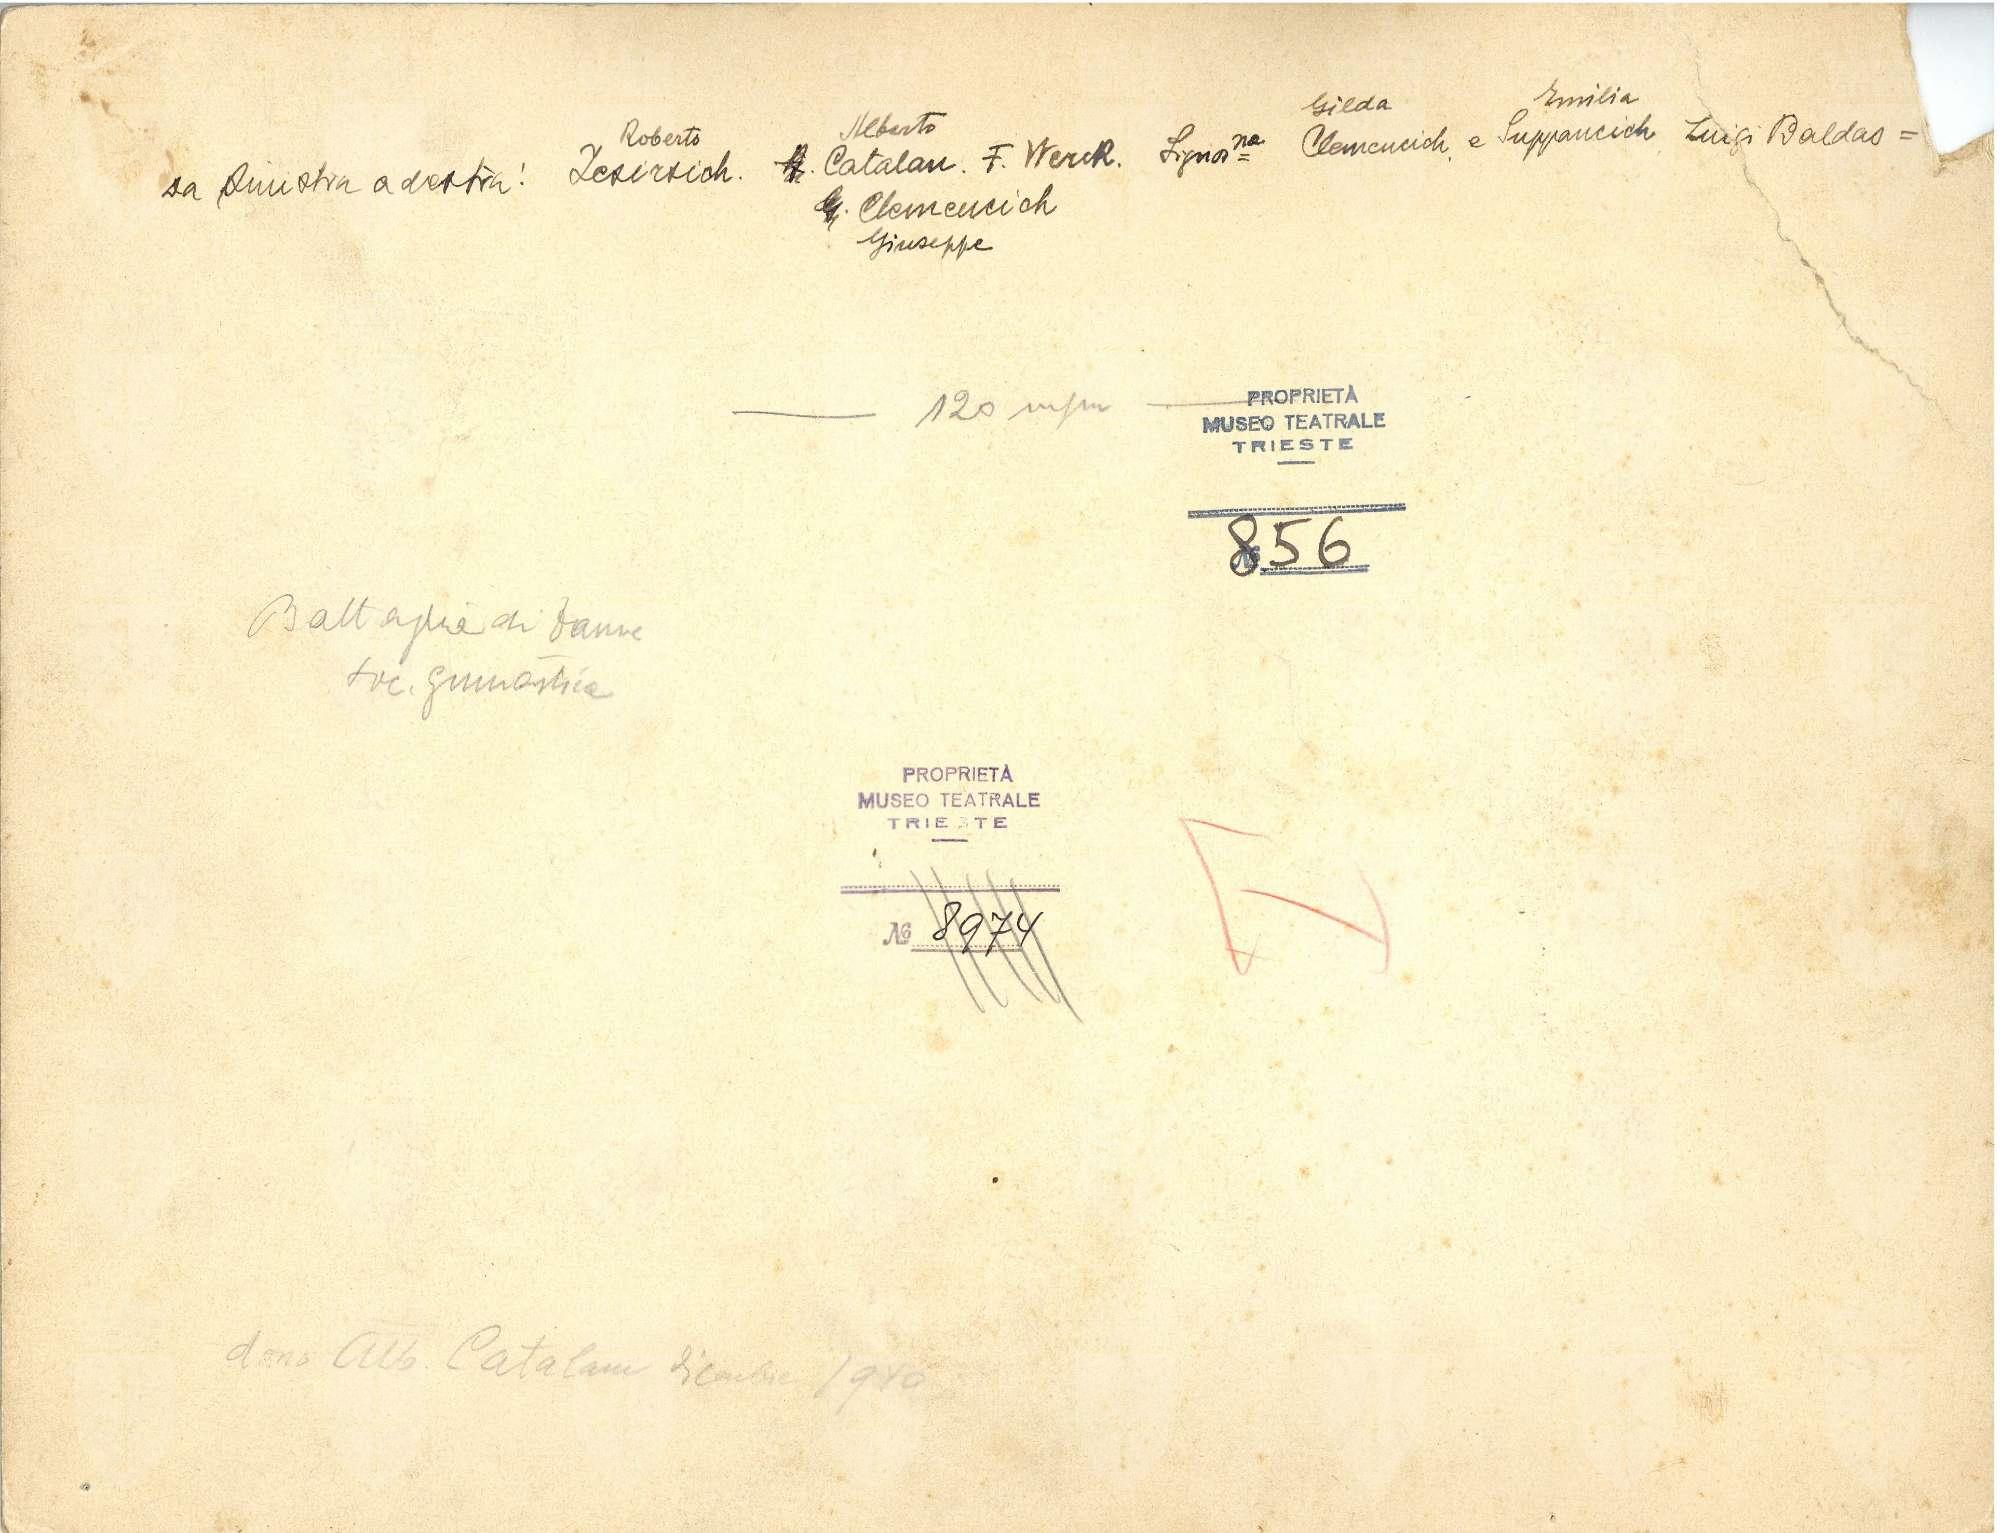 Roberto Alberto Gilda Emilia
da sinistra a destra: Zesirsich. A. Catalan. F. Werk. Signor na = Clemencich, e Suppancich, Luigi Baldas =
G. Clemencich
Giuseppe
120 m/m
PROPRIETÀ
MUSEO TEATRALE
TRIESTE
№ 856
Battaglia di Dame
soc. ginnastica
PROPRIETÀ
MUSEO TEATRALE
TRIESTE
№ 8974
dono Alb. Catalan dicembre 1940